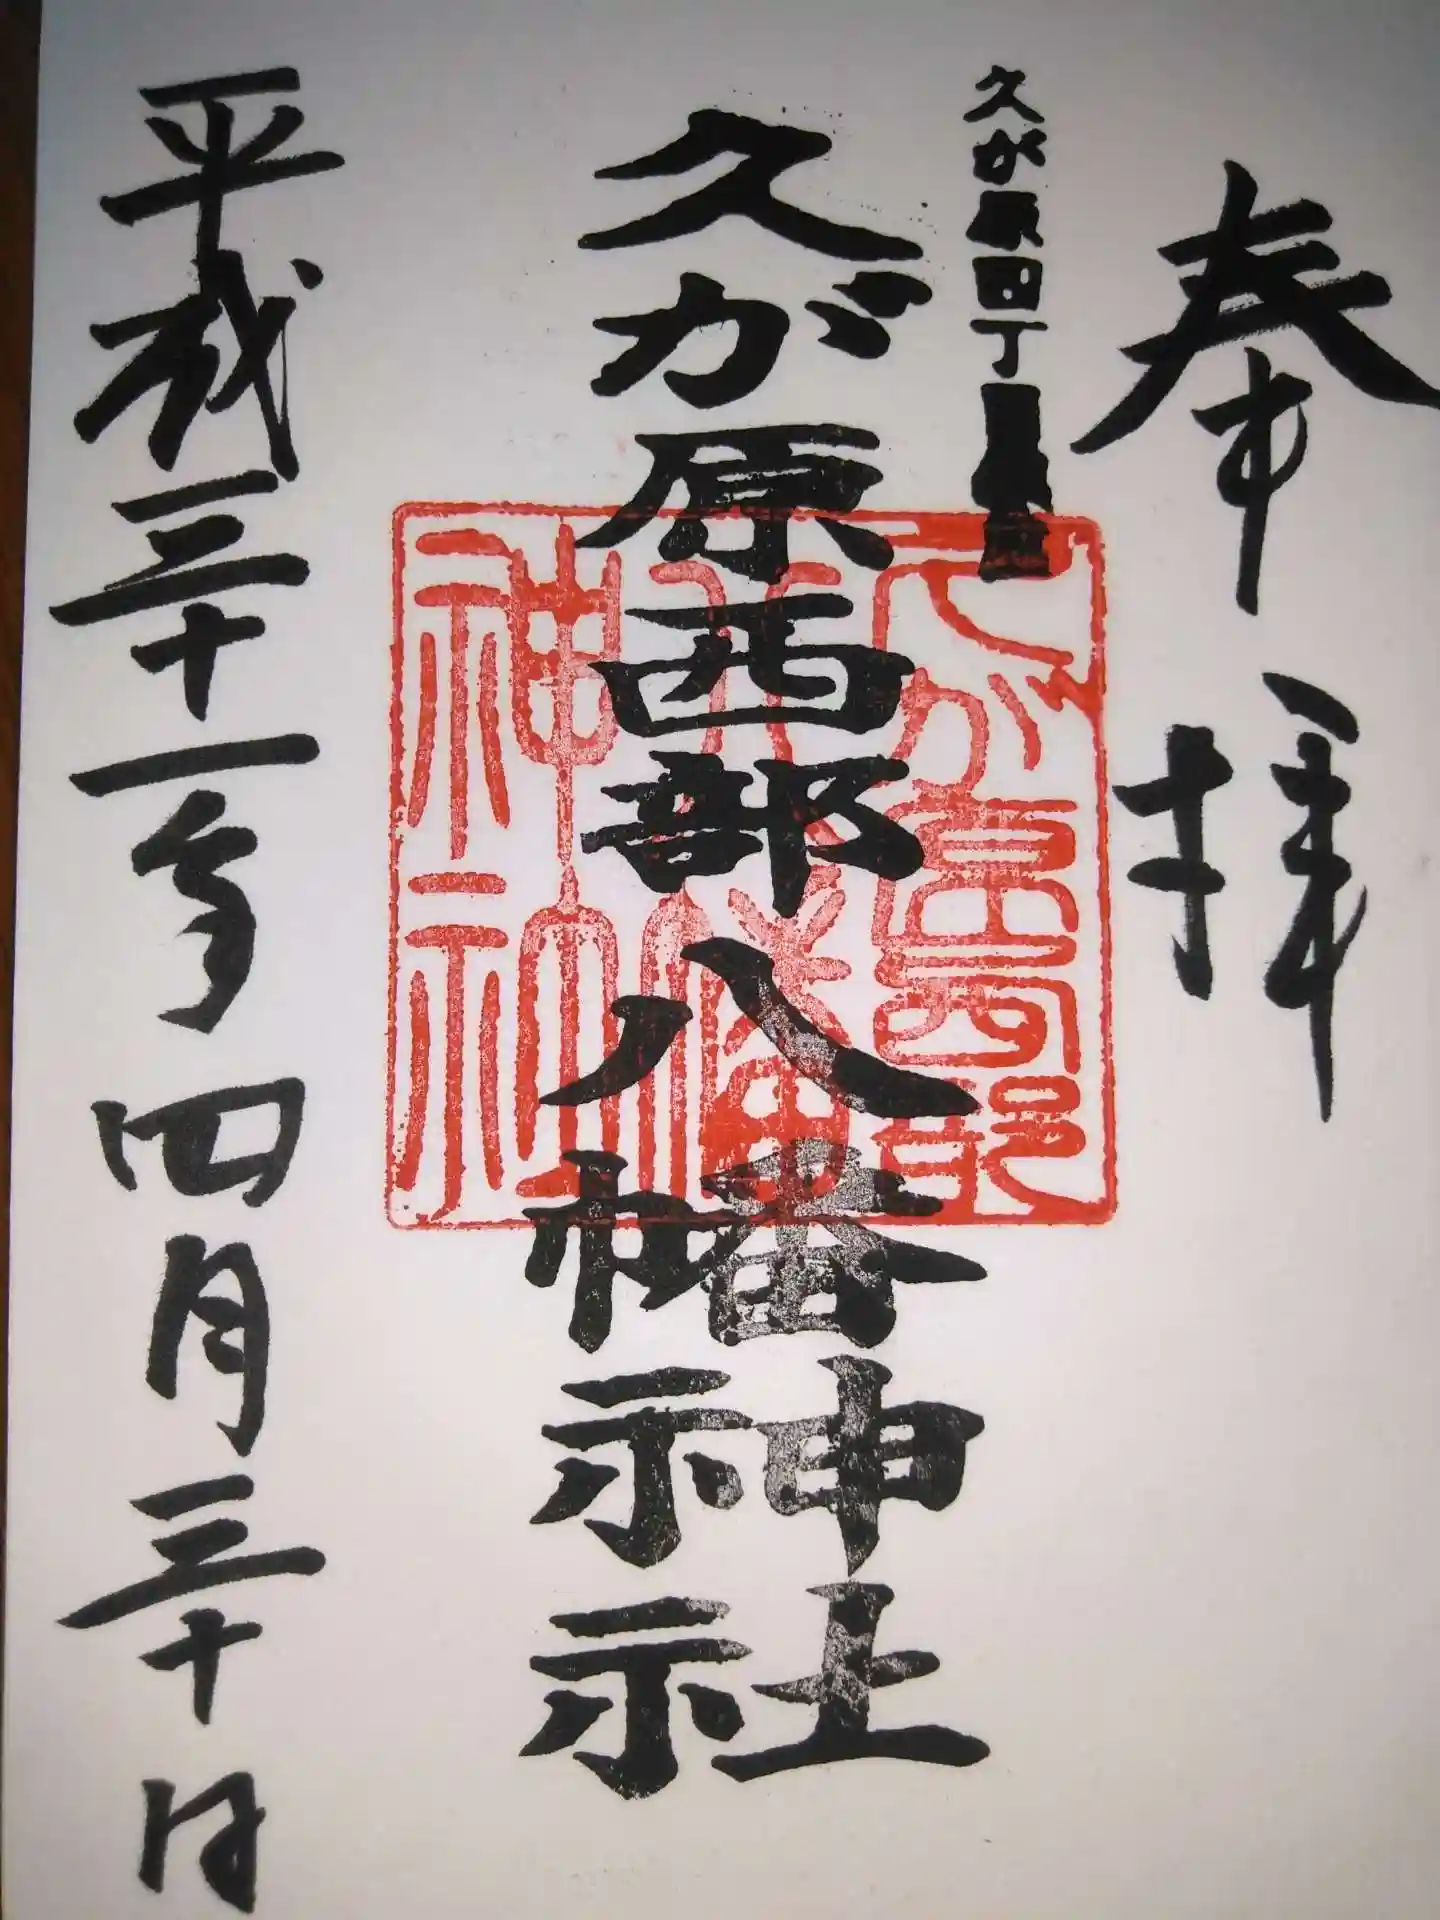 奉拝
久が原四丁目
久が原西部八幡神社
久が原西部
八幡
神社
平成三十一年四月三十日